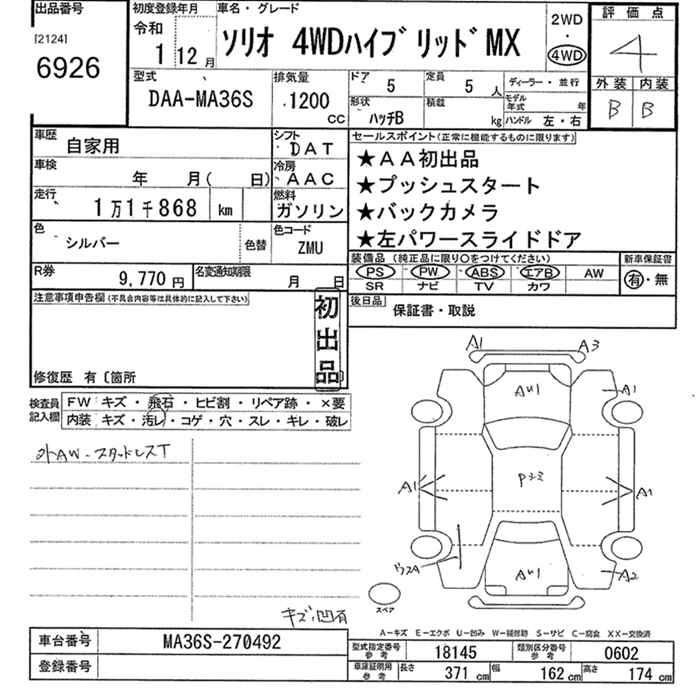 出品番号
[2124]
6926
初度登録年月
令和
1 12月
車名・グレード
ソリオ 4WDハイブリッドMX
2WD
・
4WD
評価点
4
外装 内装
B B
型式
DAA-MA36S
排気量
1200
CC
ドア 5
定員 5 人
形状 ハッチB
積載 kg
ディーラー・並行
モデル年式 年
ハンドル 左・右
車歴 自家用
シフト DAT
車検 年 月( 日)
冷房 AAC
走行 1万1千868 km
燃料 ガソリン
色 シルバー
色替
色コード ZMU
R券 9,770円
名変通知期限 月 日
セールスポイント(正常に機能するものに限ります)
★AA初出品
★プッシュスタート
★バックカメラ
★左パワースライドドア
装備品(純正品に限り○をつけてください)
PS PW ABS エアB AW
SR ナビ TV カワ
新車保証書
有・無
後日品 保証書・取説
注意事項申告欄(不具合内容等は具体的に記入して下さい)
初出品
修復歴 有〔箇所 〕
検査員記入欄
FW キズ・飛石・ヒビ割・リペア跡・×要
内装 キズ・汚レ・コゲ・穴・スレ・キレ・破レ
外AW-スタッドレスT
キズ凹有
A1 A3
AU1 A1
A1 Pシミ A1
ウスA AU1 A2
スペア
A-キズ E-エクボ U-凹み W-補修跡 S-サビ C-腐食 XX-交換済
車台番号 MA36S-270492
登録番号
型式指定番号 参考 18145
類別区分番号 参考 0602
車庫証明用 参考 長さ 371 cm 幅 162 cm 高さ 174 cm